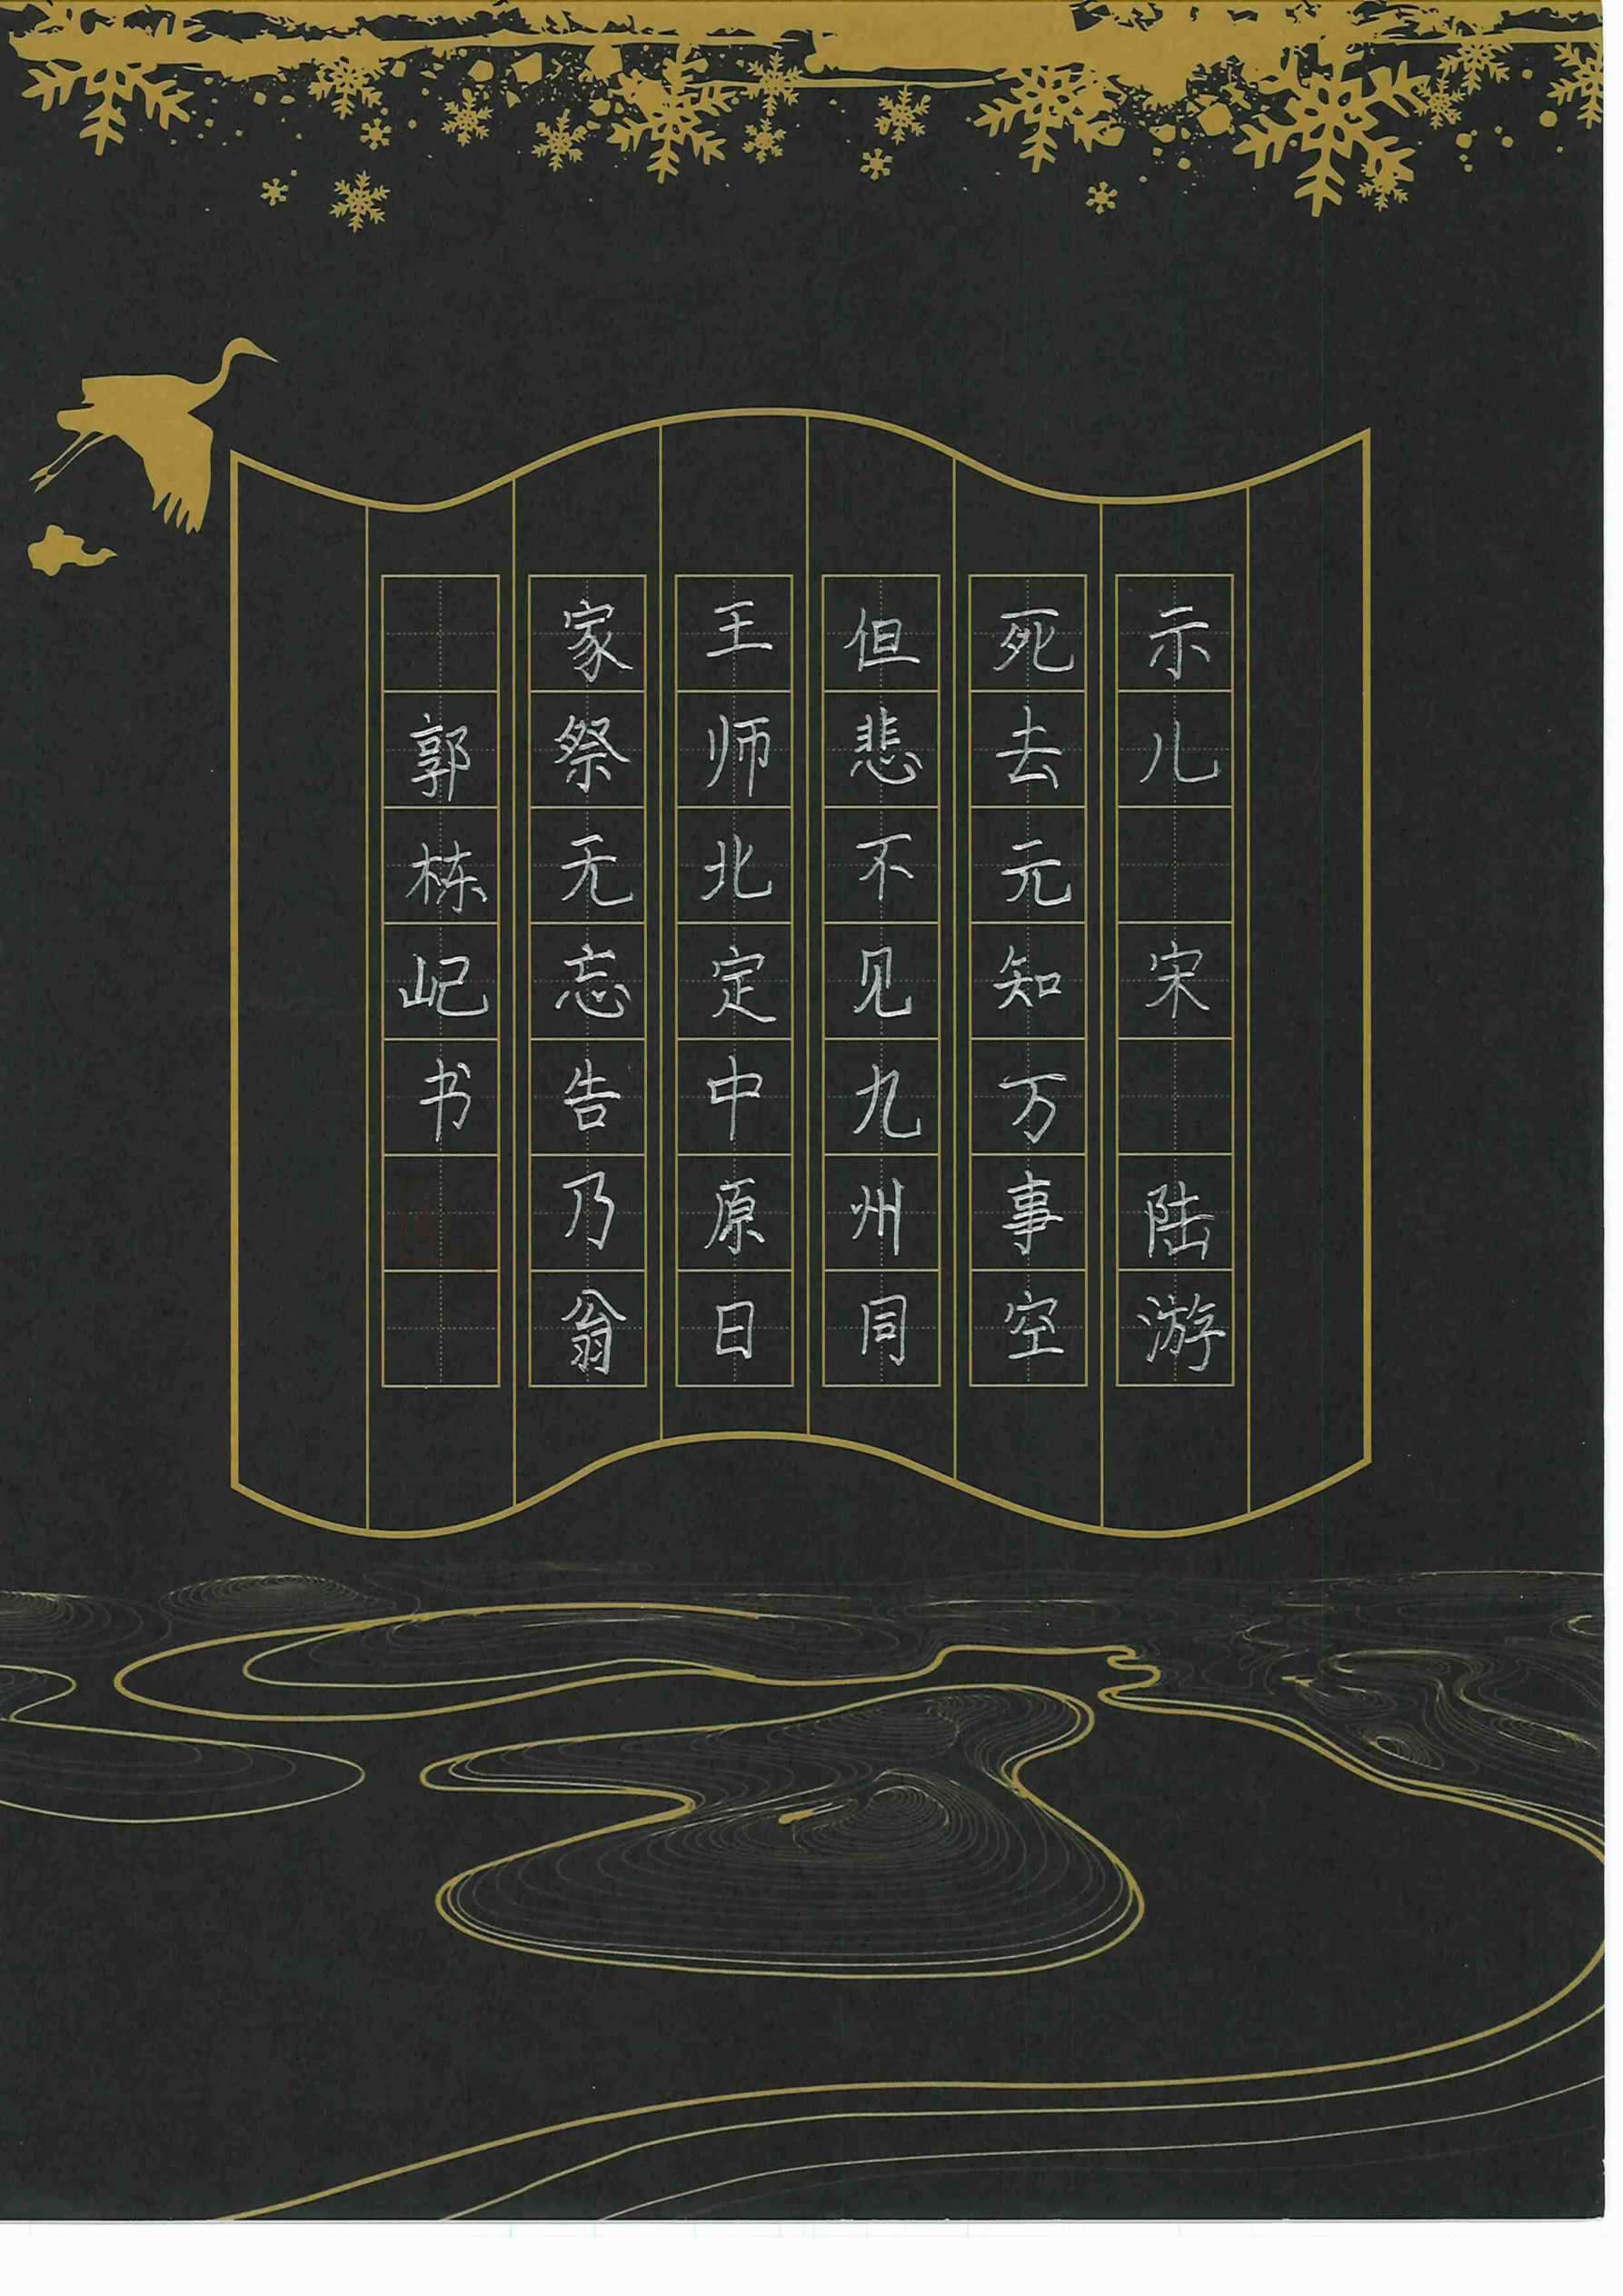 示儿 宋 陆游
死去元知万事空
但悲不见九州同
王师北定中原日
家祭无忘告乃翁
郭栋屺书